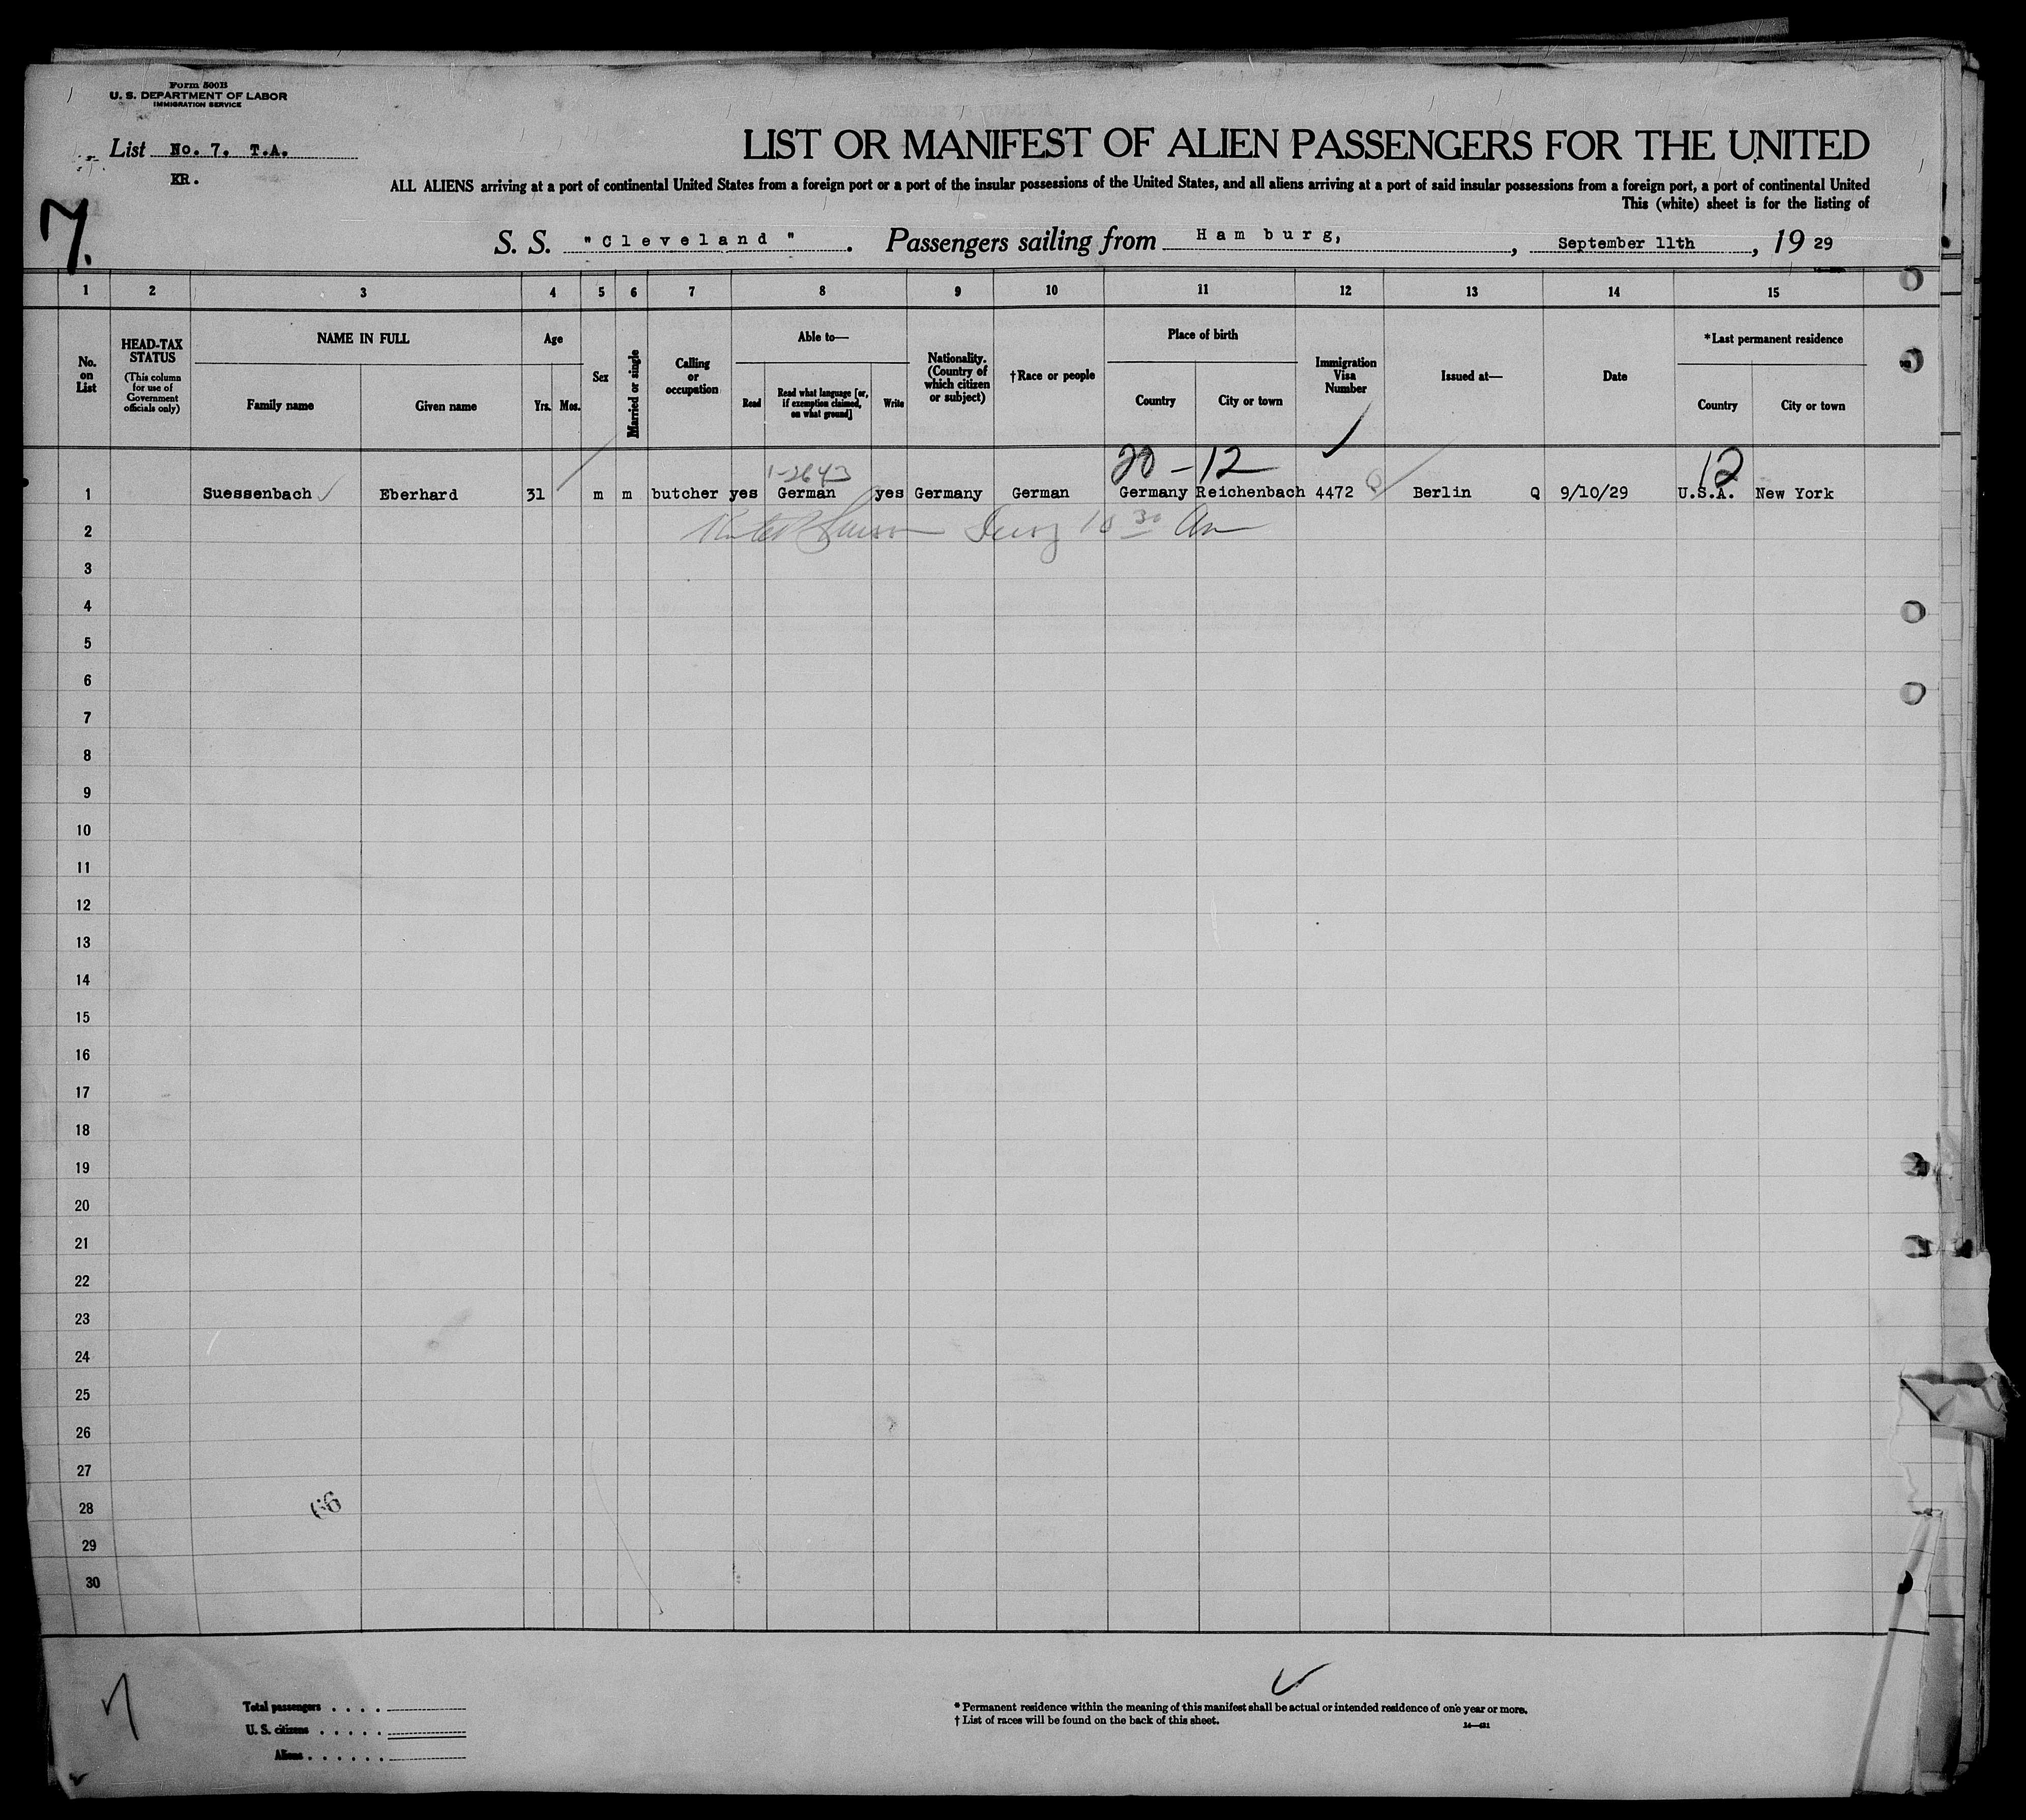 Form 500B
U. S. DEPARTMENT OF LABOR
IMMIGRATION SERVICE
List No. 7. T.A.
KR.
7.
LIST OR MANIFEST OF ALIEN PASSENGERS FOR THE UNITED
ALL ALIENS arriving at a port of continental United States from a foreign port or a port of the insular possessions of the United States, and all aliens arriving at a port of said insular possessions from a foreign port, a port of continental United
This (white) sheet is for the listing of
S. S. "Cleveland". Passengers sailing from Hamburg, , September 11th, 19 29
1 2 3 4 5 6 7 8 9 10 11 12 13 14 15
No. on List
HEAD-TAX STATUS (This column for use of Government officials only)
NAME IN FULL
Family name Given name
Age
Yrs. Mos.
Sex
Married or single
Calling or occupation
Able to—
Read Read what language [or, if exemption claimed, on what ground] Write
Nationality. (Country of which citizen or subject)
†Race or people
Place of birth
Country City or town
Immigration Visa Number
Issued at—
Date
*Last permanent residence
Country City or town
1-2643 20-12 12
1 Suessenbach Eberhard 31 m m butcher yes German yes Germany German Germany Reichenbach 4472 Q Berlin Q 9/10/29 U.S.A. New York
2 10 30 Am
3
4
5
6
7
8
9
10
11
12
13
14
15
16
17
18
19
20
21
22
23
24
25
26
27
28
66
29
30
Total passengers . . . .
U. S. citizens . . . . .
Aliens . . . . . .
* Permanent residence within the meaning of this manifest shall be actual or intended residence of one year or more.
† List of races will be found on the back of this sheet.
14—421